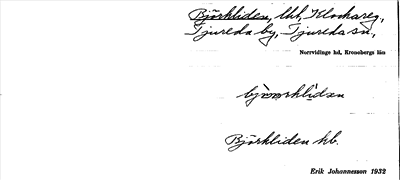 Björkliden, lht, Klockareg.,
Tjureda by, Tjureda sn,
Norrvidinge hd, Kronobergs län
Björkliden hb.
Erik Johannesson 1932